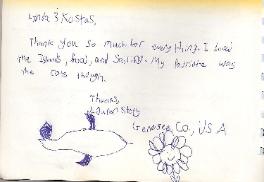 Lynda & Kostas,
Thank you so much for everything. I loved
the Islands, food, and Sailing. My favorite was
the cats though.
Thanks,
Genesee, Co, USA